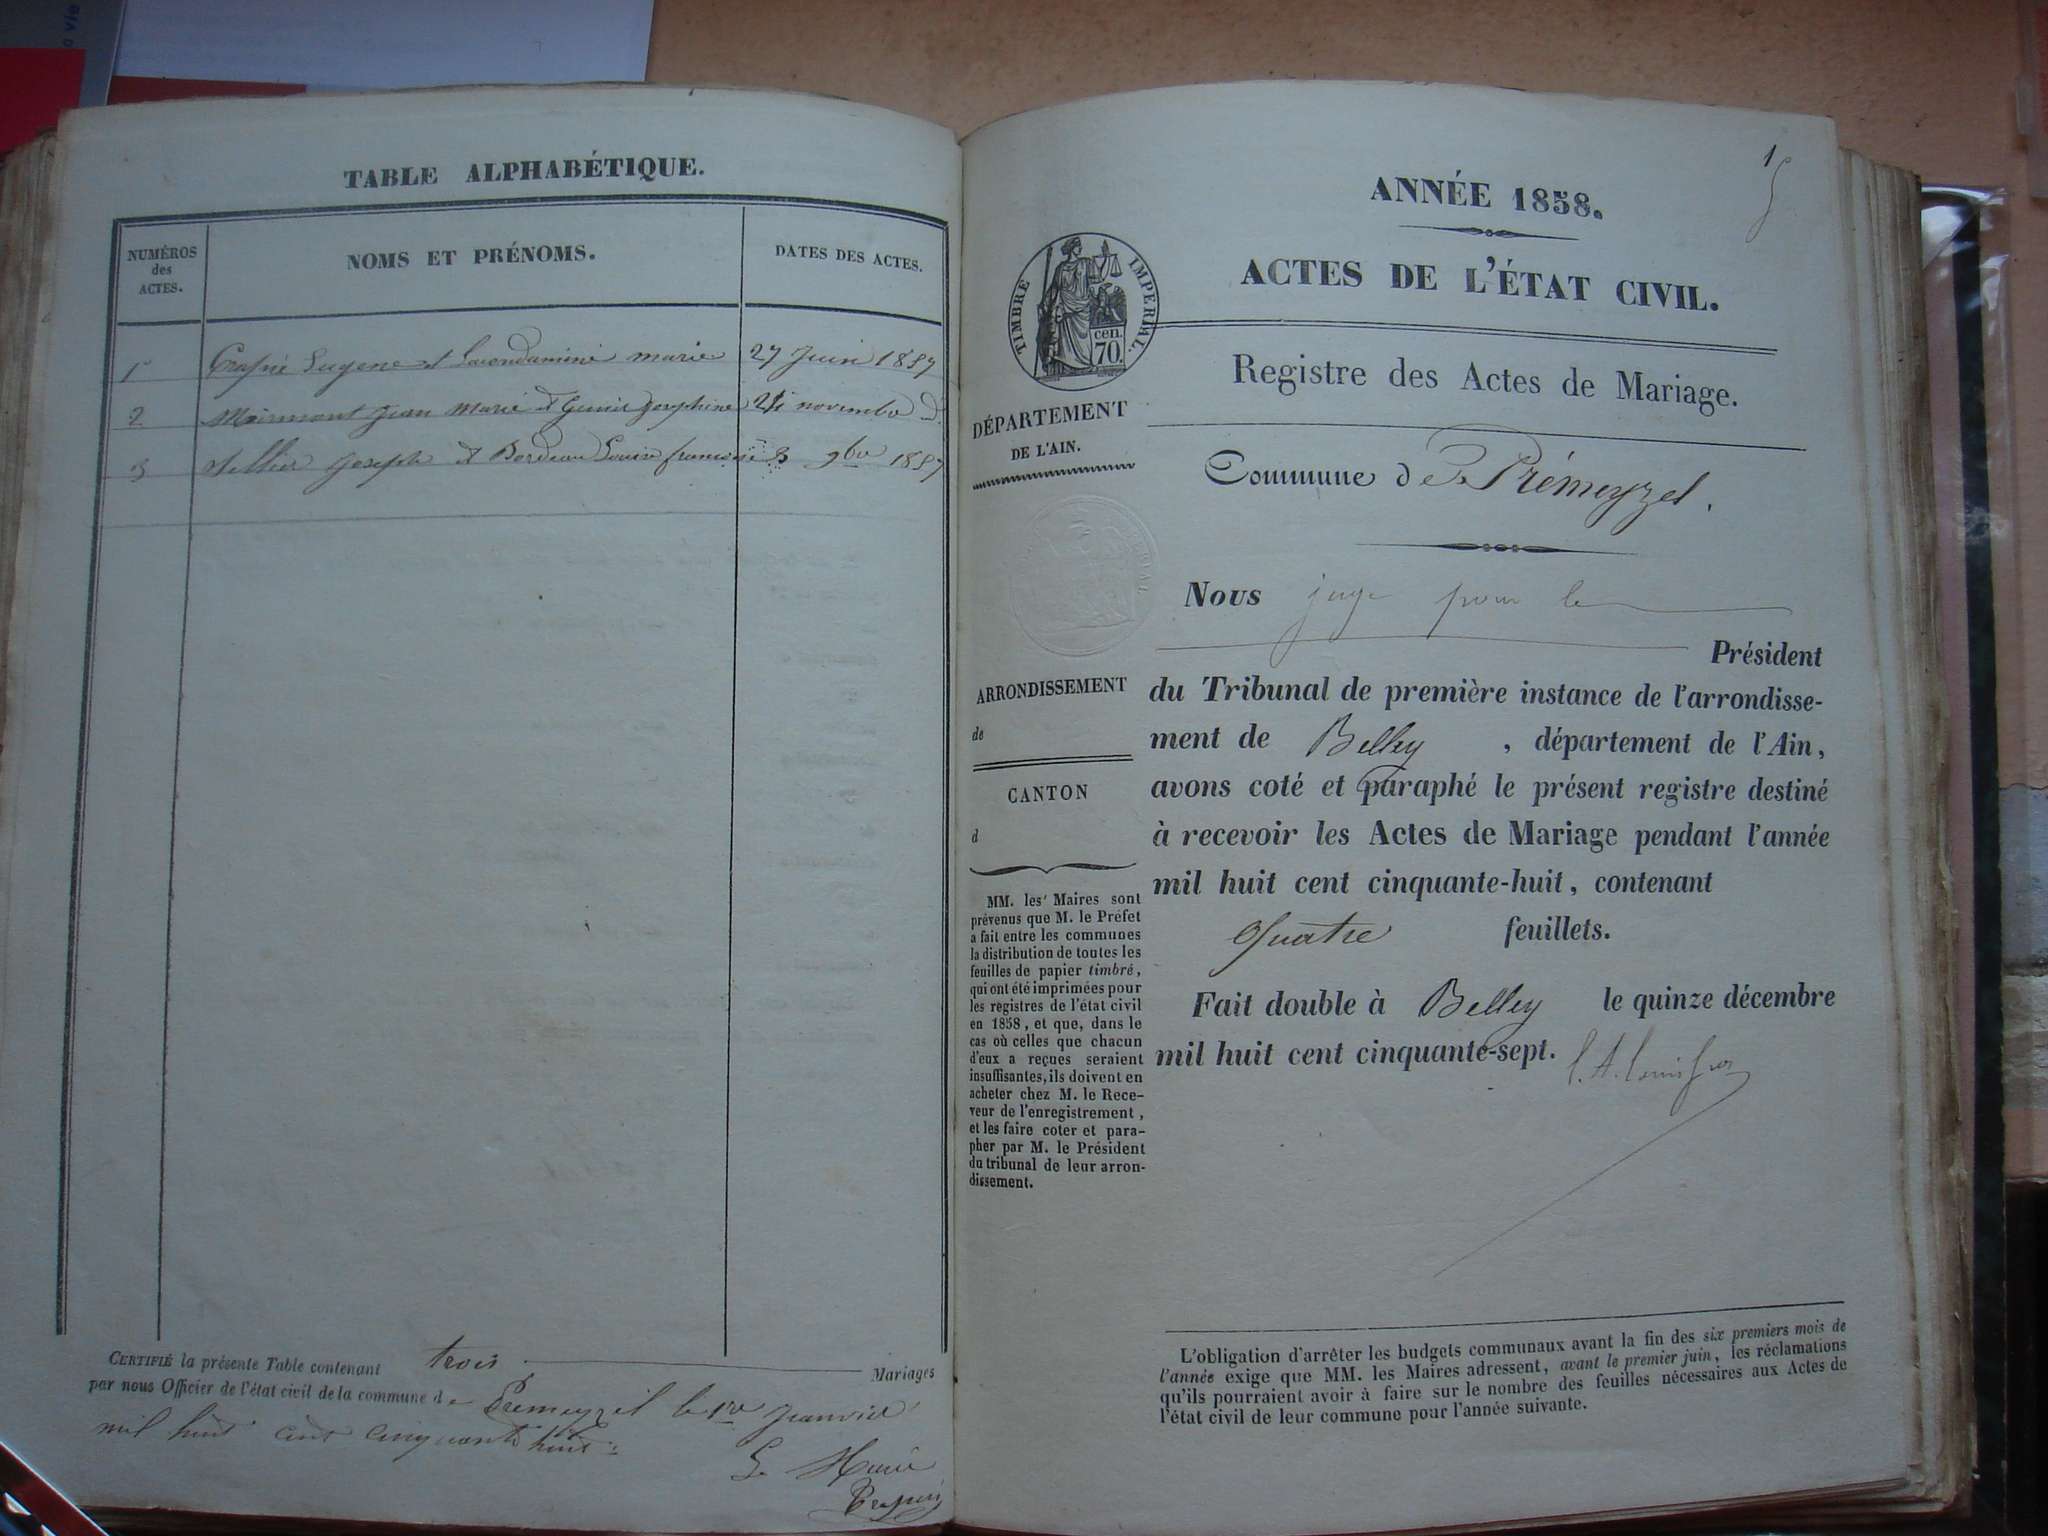 TABLE ALPHABÉTIQUE.
NUMÉROS
des
ACTES.
NOMS ET PRÉNOMS.
DATES DES ACTES.
1 Eugene et marie 27 Juin 1857
2 Jean Marie et Josephine novembre
3 Joseph et Bordeau Louise 8 9bre 1857
CERTIFIÉ la présente Table contenant trois Mariages
par nous Officier de l'état civil de la commune de Premeyzel le 1re Janvier
mil huit cent cinquante huit
Le Maire
1
ANNÉE 1858.
ACTES DE L'ÉTAT CIVIL.
TIMBRE IMPERIAL.
cen.
70.
Registre des Actes de Mariage.
DÉPARTEMENT
DE L'AIN.
Commune de Prémeyzel.
Nous juge pour le
Président
du Tribunal de première instance de l'arrondisse-
ment de Belley, département de l'Ain,
avons coté et paraphé le présent registre destiné
à recevoir les Actes de Mariage pendant l'année
mil huit cent cinquante-huit, contenant
Quatre feuillets.
Fait double à Belley le quinze décembre
mil huit cent cinquante-sept.
ARRONDISSEMENT
de
CANTON
d
MM. les Maires sont
prévenus que M. le Préfet
a fait entre les communes
la distribution de toutes les
feuilles de papier timbré,
qui ont été imprimées pour
les registres de l'état civil
en 1858, et que, dans le
cas où celles que chacun
d'eux a reçues seraient
insuffisantes, ils doivent en
acheter chez M. le Rece-
veur de l'enregistrement,
et les faire coter et para-
pher par M. le Président
du tribunal de leur arron-
dissement.
L'obligation d'arrêter les budgets communaux avant la fin des six premiers mois de
l'année exige que MM. les Maires adressent, avant le premier juin, les réclamations
qu'ils pourraient avoir à faire sur le nombre des feuilles nécessaires aux Actes de
l'état civil de leur commune pour l'année suivante.